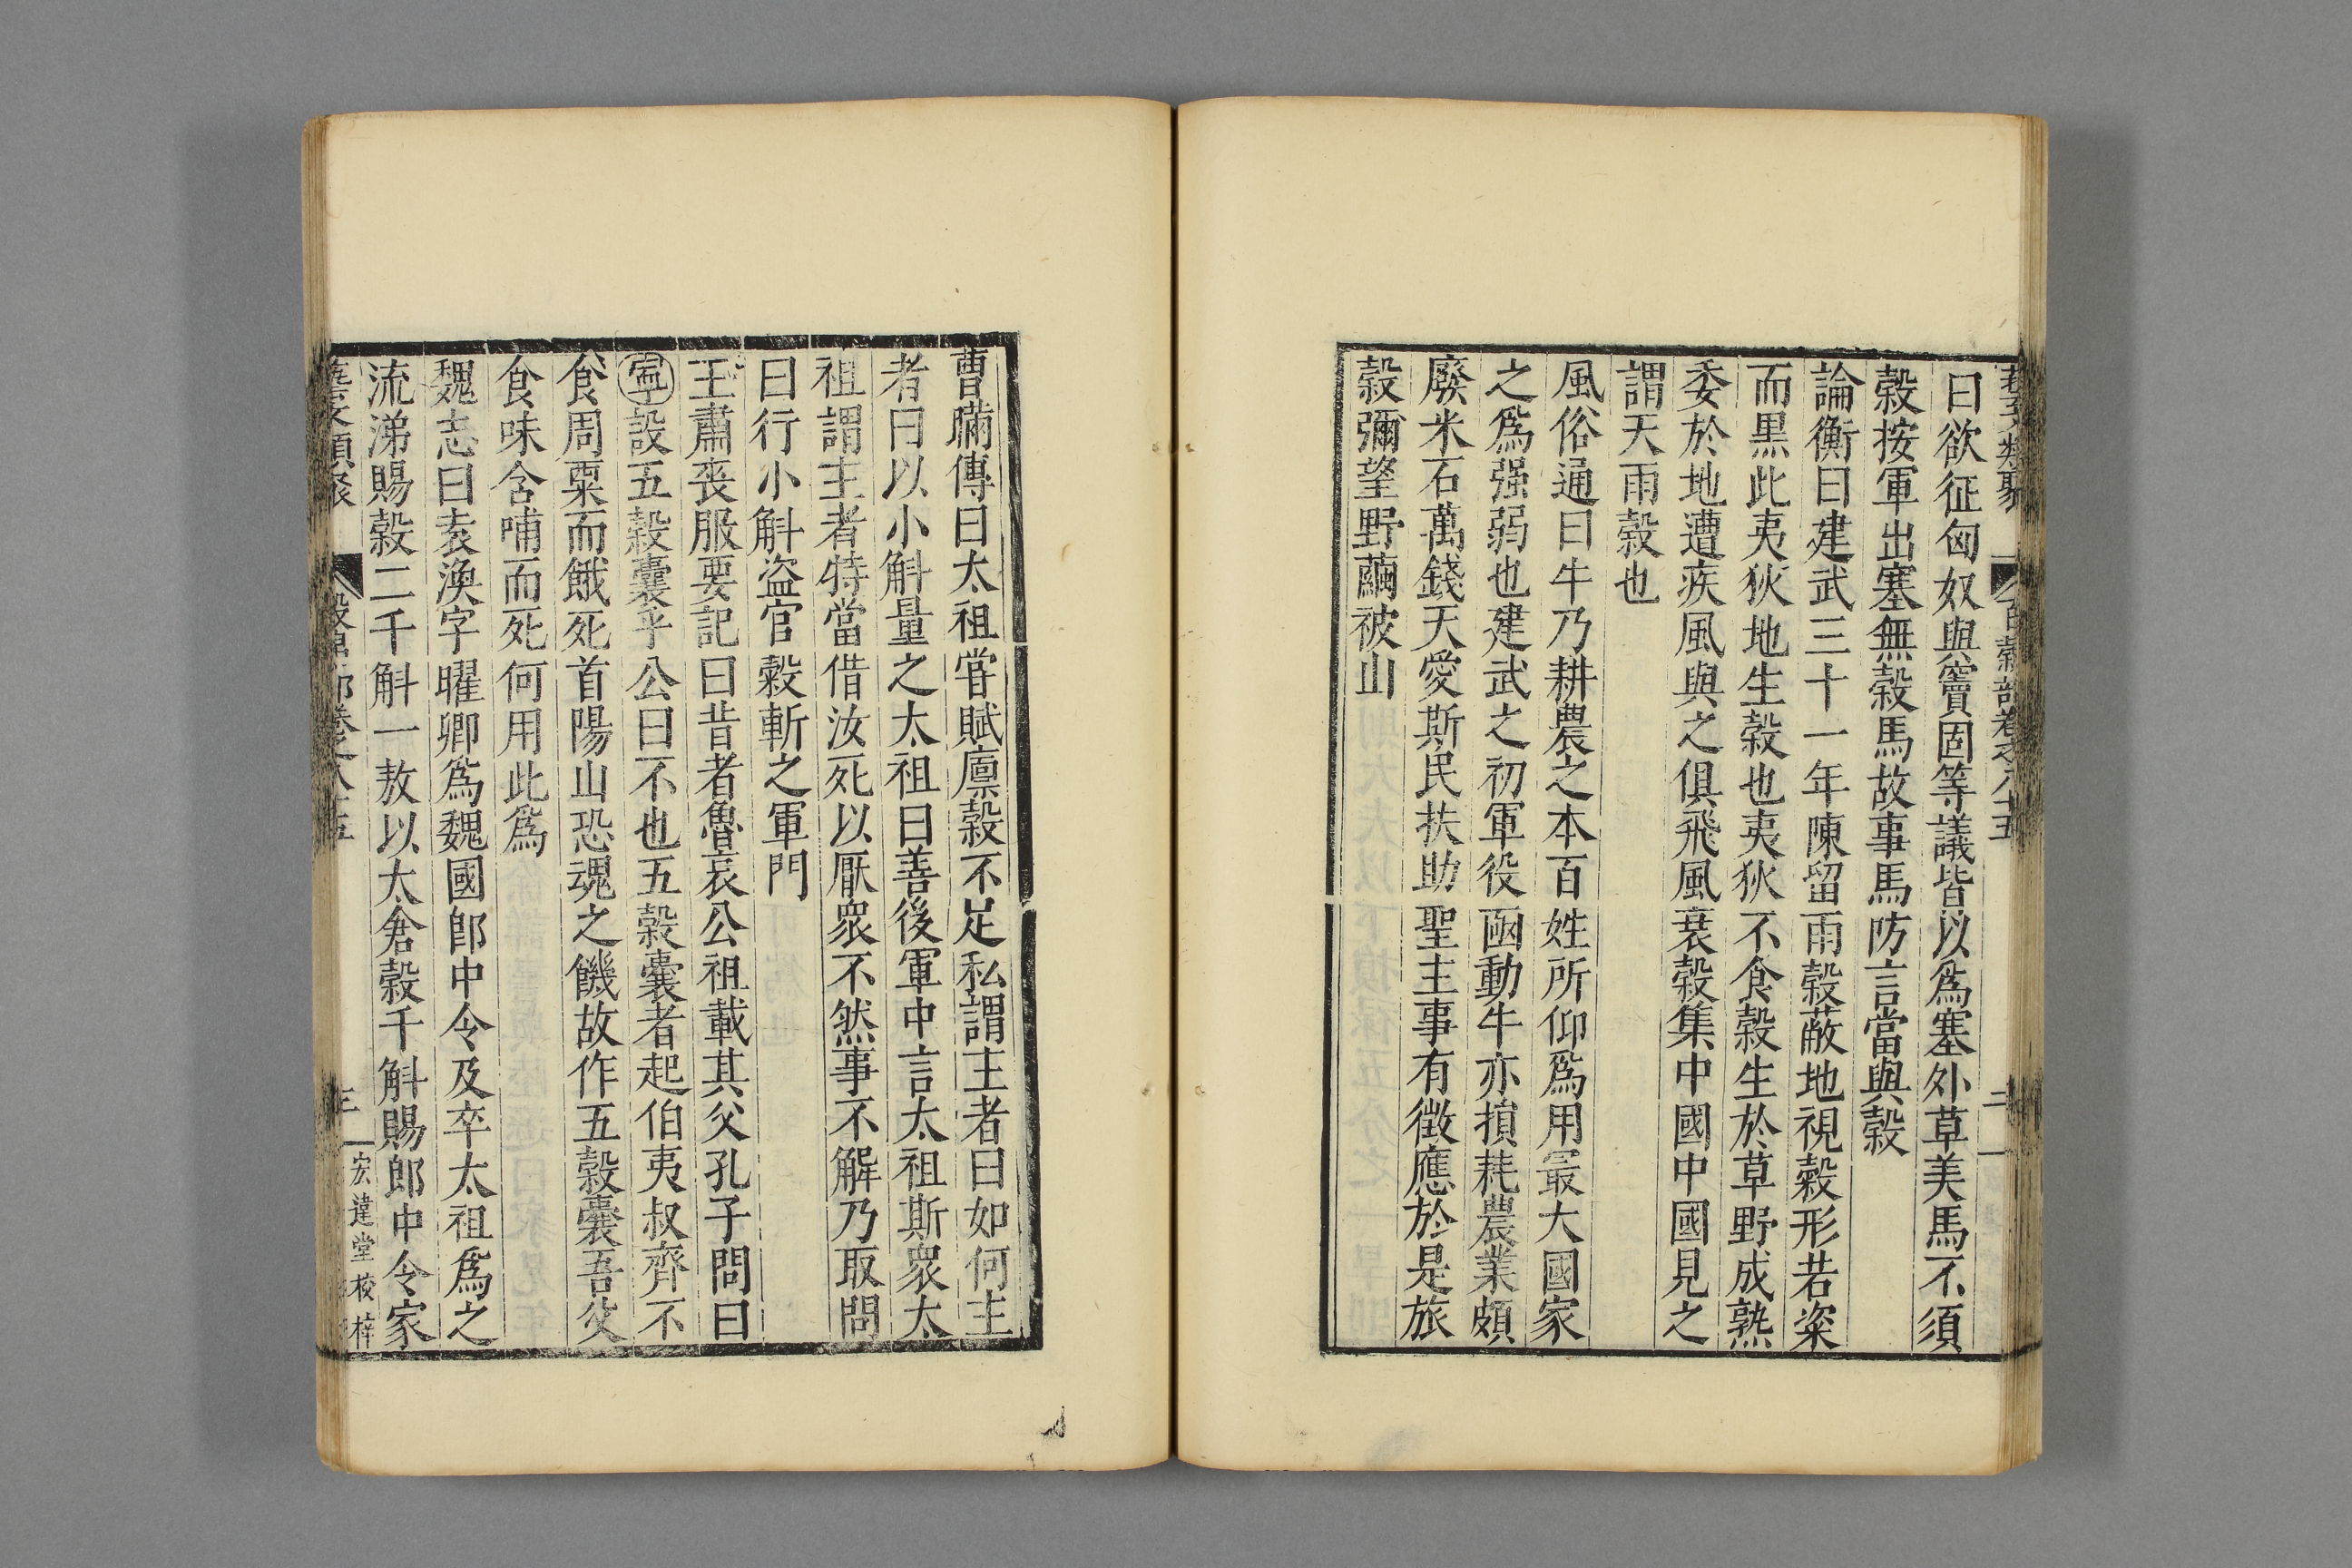 藝文類聚 百穀部卷之八十五 二
曰欲征匈奴與竇固等議皆以爲塞外草美馬不須
穀按軍出塞無穀馬故事馬防言當與穀
論衡曰建武三十一年陳留雨穀蔽地視穀形若粢
而黑此夷狄地生穀也夷狄不食穀生於草野成熟
委於地遭疾風與之俱飛風衰穀集中國中國見之
謂天雨穀也
風俗通曰牛乃耕農之本百姓所仰爲用最大國家
之爲强弱也建武之初軍役亟動牛亦損耗農業頗
廢米石萬錢天愛斯民扶助聖主事有徵應於是旅
穀彌望野繭被山
曹瞞傳曰太祖甞賦廪穀不足私謂主者曰如何主
者曰以小斛量之太祖曰善後軍中言太祖斯衆太
祖謂主者特當借汝死以厭衆不然事不解乃取問
曰行小斛盗官穀斬之軍門
王肅喪服要記曰昔者魯哀公祖載其父孔子問曰
寕設五穀囊乎公曰不也五穀囊者起伯夷叔齊不
食周粟而餓死首陽山恐魂之饑故作五穀囊吾父
食味含哺而死何用此爲
魏志曰袁渙字曜卿爲魏國郎中令及卒太祖爲之
流涕賜穀二千斛一敖以太倉穀千斛賜郎中令家
藝文類聚 穀部卷之八十五 三 宏達堂校梓